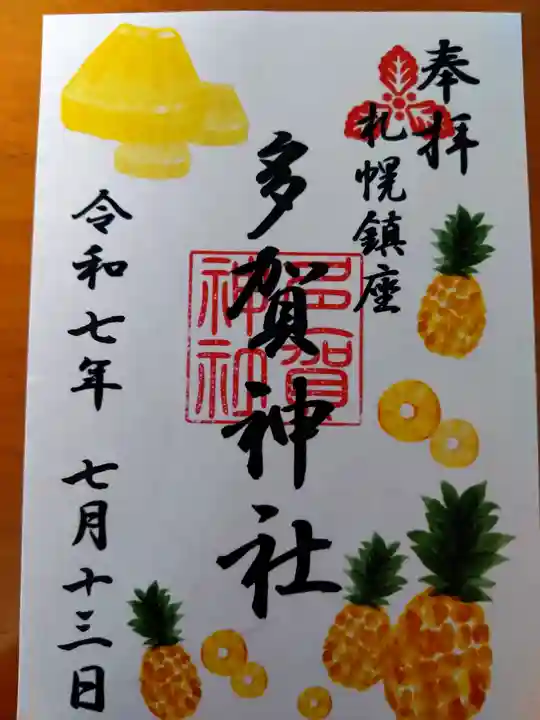 奉拝
札幌鎮座
多賀神社
多賀
神社
令和七年 七月十三日